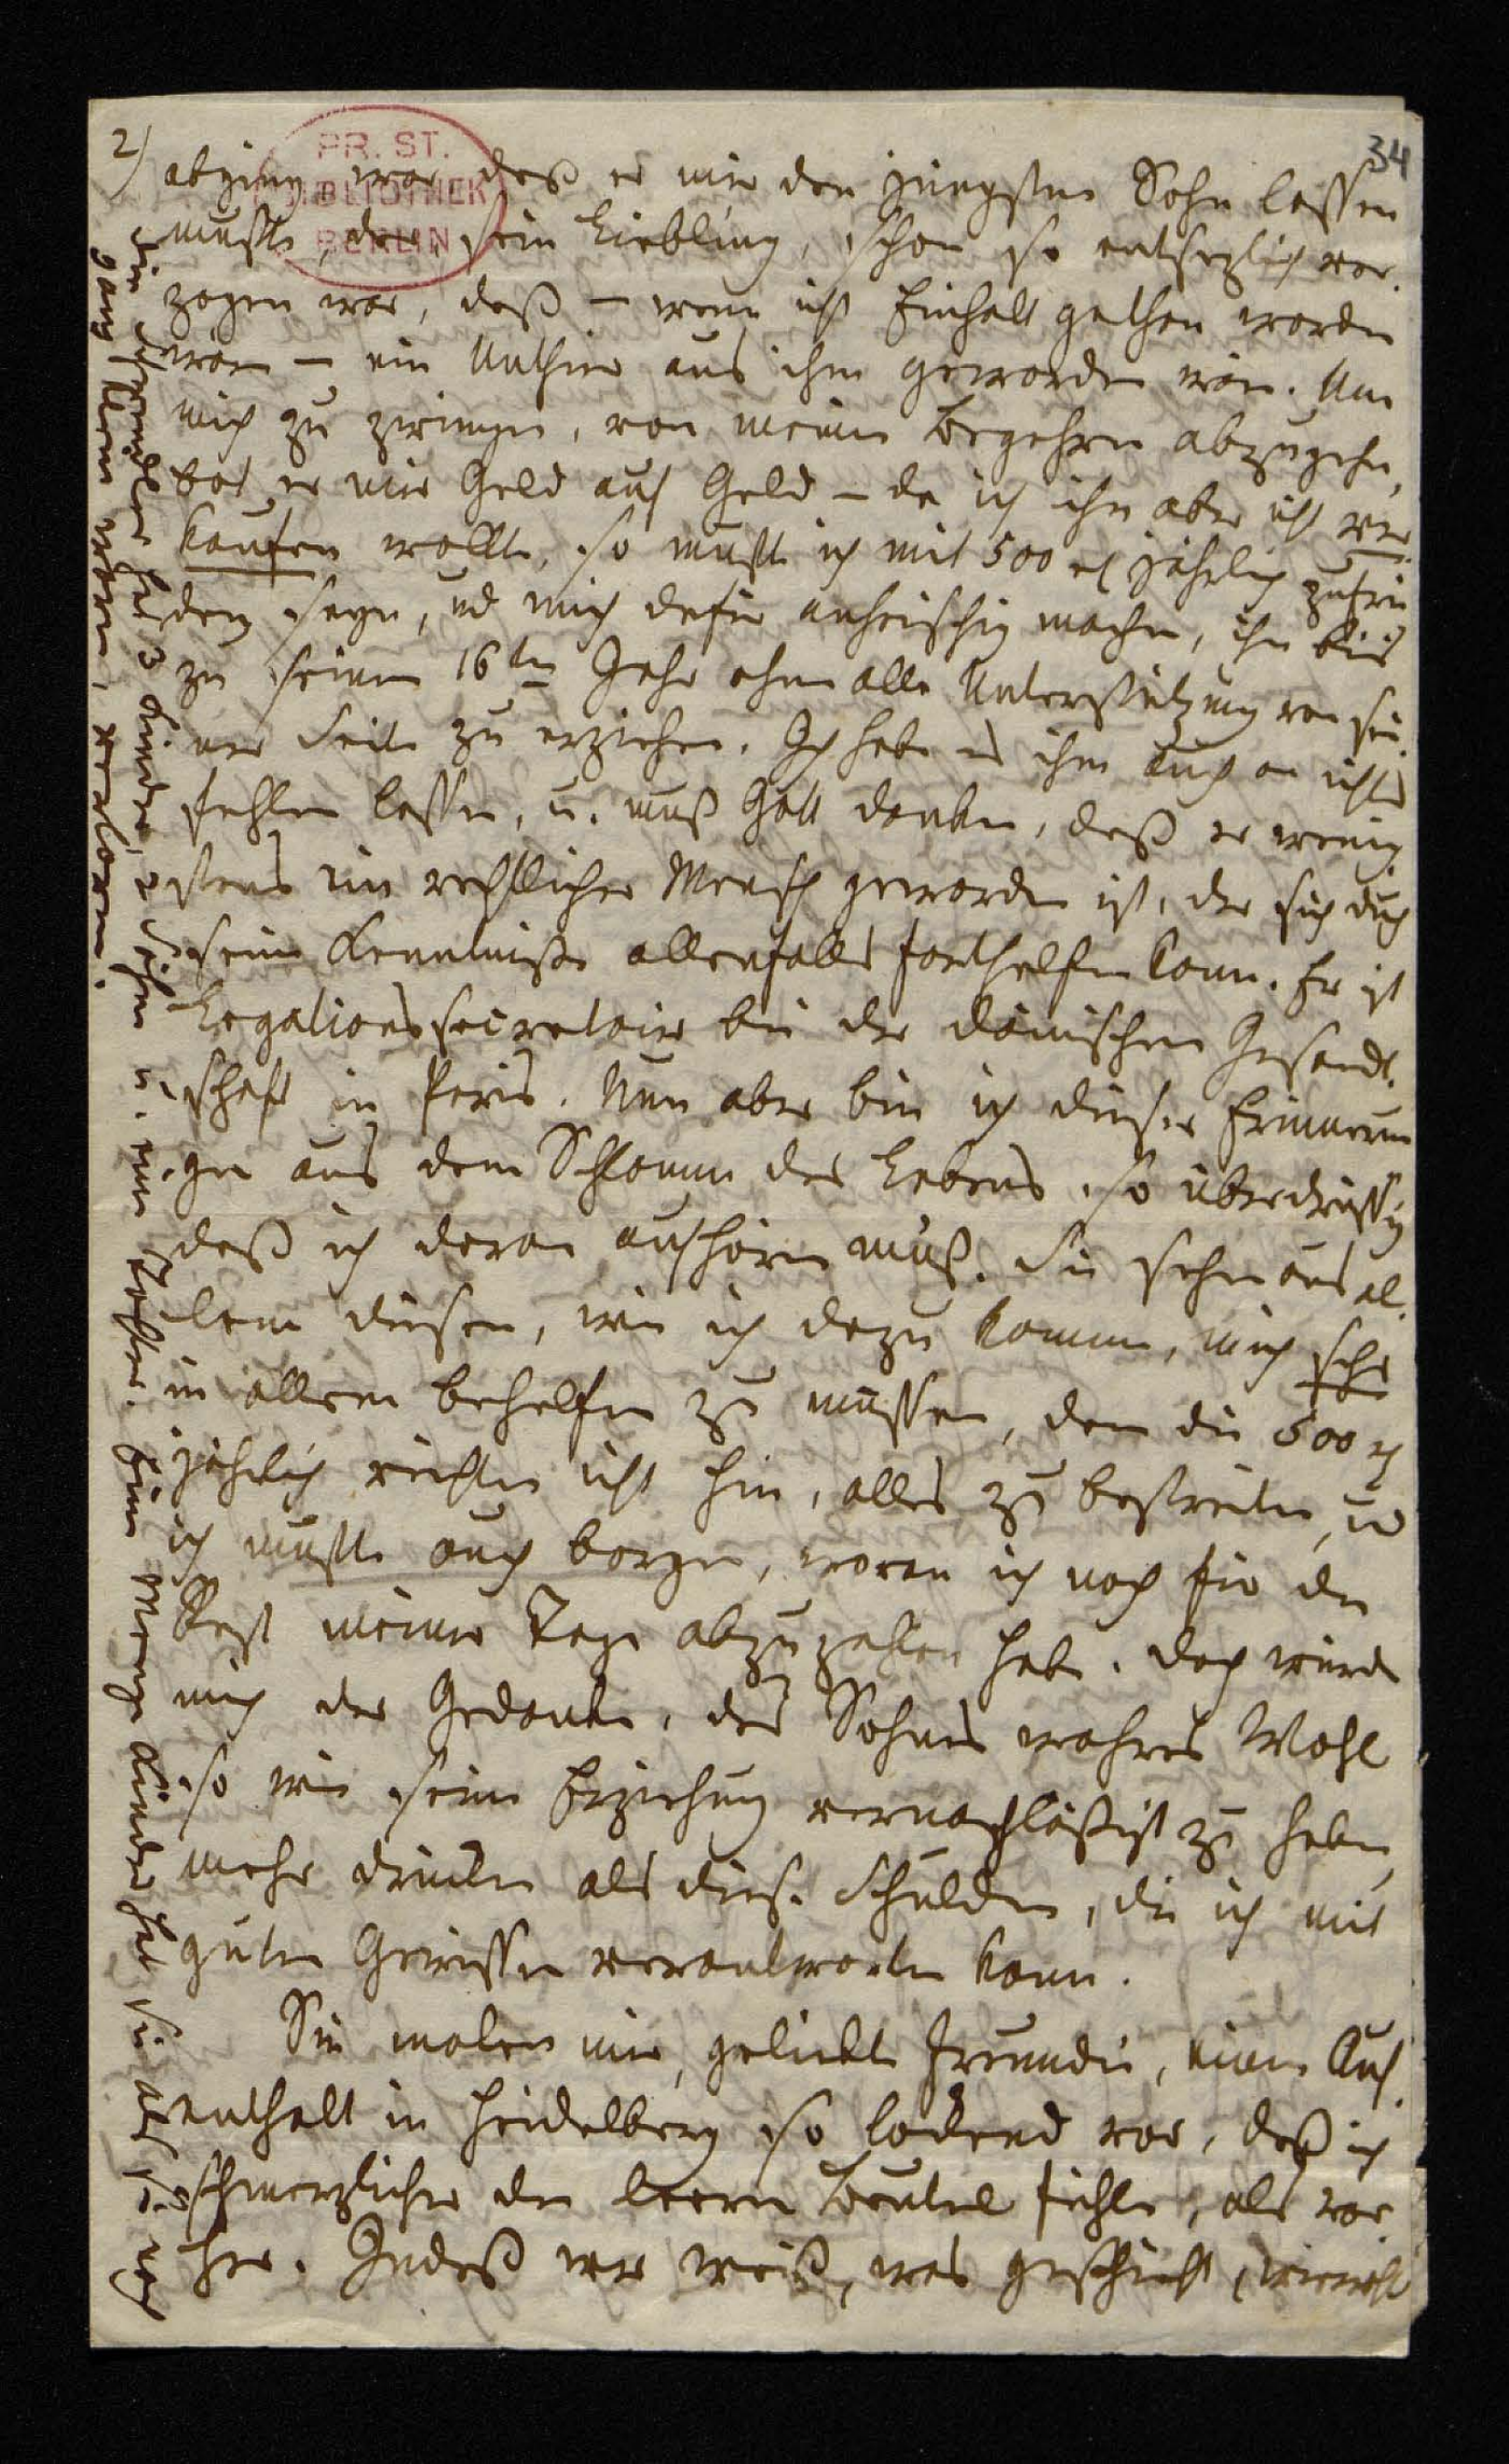 2)
34
PR. ST.
BIBLIOTHEK
BERLIN
abging, war, daß er mir den jüngsten Sohn lassen
mußte, der, sein Liebling, schon so entsezlich ver-
zogen war, daß – wenn nicht Einhalt gethan worden
wäre – ein Unthier aus ihm geworden wäre. Um
mich zu zwingen, von meinem Begehren abzugehn,
bot er mir Geld auf Geld – da ich ihn aber nicht ver-
kaufen wollte, so mußte ich mit 500 rl jährlich zufrie
den seyn, und mich dafür anheischig machen, ihn bis
zu seinem 16ten Jahr ohne alle Unterstützung von sei-
ner Seite zu erziehen. Ich habe es ihm auch an nichts
fehlen lassen, u. muß Gott danken, daß er wenig-
stens ein rechtlicher Mensch geworden ist, der sich durch
seine Kenntniße allenfalls forthelfen kann. Er ist
Legationssecretair bei der dänischen Gesandt-
schaft in Paris. Nun aber bin ich dieser Erinnerun
gen aus dem Schlamm des Lebens so überdrüssig
daß ich davon aufhören muß. Sie sehn aus al-
lem diesen, wie ich dazu komme, mich sehr
in allem behelfen zu müssen, denn die 500 rl
jährlich reichten nicht hin, alles zu bestreiten, und
ich mußte auch borgen, woran ich noch für den
Rest meiner Tage abzuzahlen habe. Doch würde
mich der Gedanke, des Sohnes wahres Wohl
so wie seine Erziehung vernachläßigt zu haben,
mehr drücken als diese Schulden, die ich mit
gutem Gewissen verantworten kann.
Sie malen mir, geliebte Freundin, einen Auf-
enthalt in Heidelberg so lockend vor, daß ich
schmerzlicher den leeren Beutel fühle, als vor-
her. Indeß wer weiß, was geschieht, wiewohl
hat 3 Kinder, 2 Söhne u. eine Tochter. Eine Menge Kinder hat sie als sie noch
ganz klein waren, verloren.